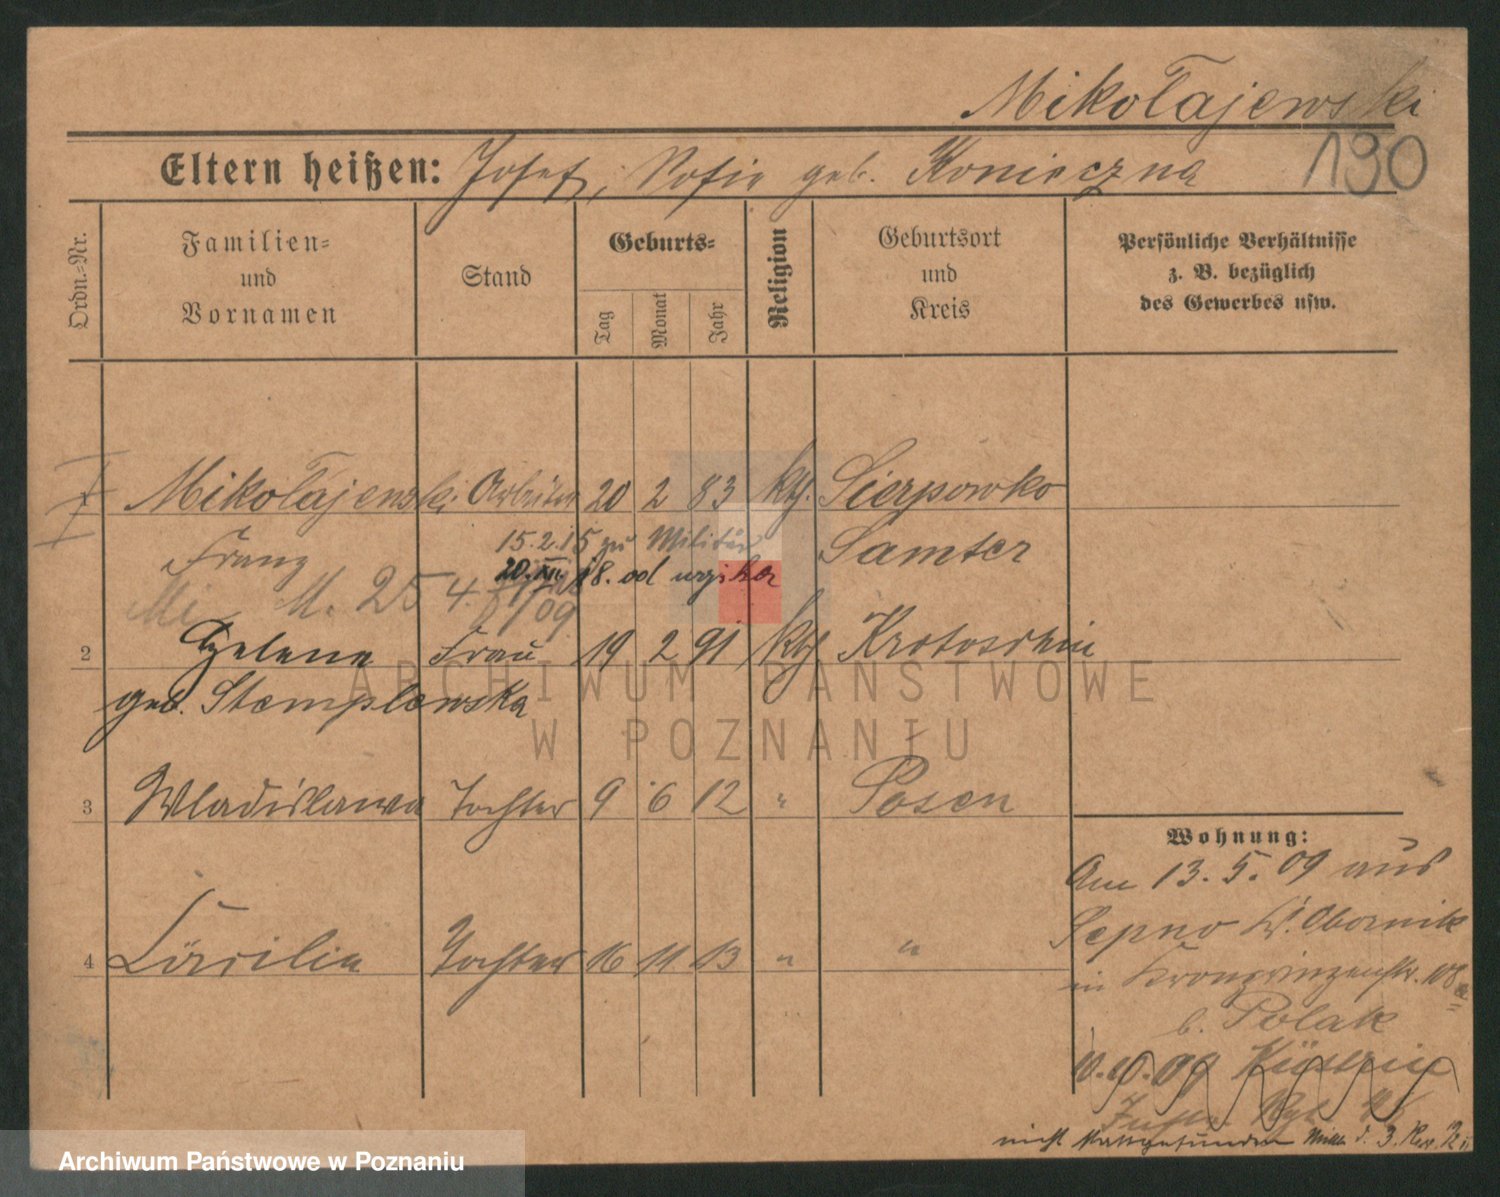 Mikołajewski
130
Eltern heißen: Josef, Sofie geb. Konieczna
Ordn.-Nr.
Familien- und Vornamen
Stand
Geburts-
Tag
Monat
Jahr
Religion
Geburtsort und Kreis
Persönliche Verhältnisse z. B. bezüglich des Gewerbes usw.
1 Mikołajewski Arbeiter 20 2 83 kth. Sierpowko
Franz Samter
15.2.15 zu Militär
20.XII. 18. od
M. 25 4.
09
2 Helene Frau 19 2 91 kth Krotoschin
geb. Stemplewska
3 Wladislawa Tochter 9 6 12 " Posen
4 Cäcilie Tochter 16 11 13 " "
Wohnung:
Am 13.5.09 aus
Sepno Kr. Obornik
in Kronprinzenstr. 108a
b. Polak
10.10.09 Küstrin
Inftr. Rgt. 48
nicht stattgefunden d. 3. Rev.
ARCHIWUM PAŃSTWOWE
W POZNANIU
Archiwum Państwowe w Poznaniu